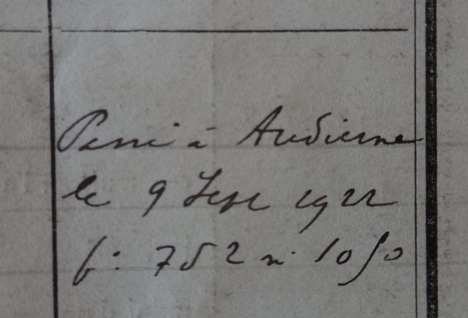 Passé à Audierne
le 9 Sept 1922
f: 752 n: 1050